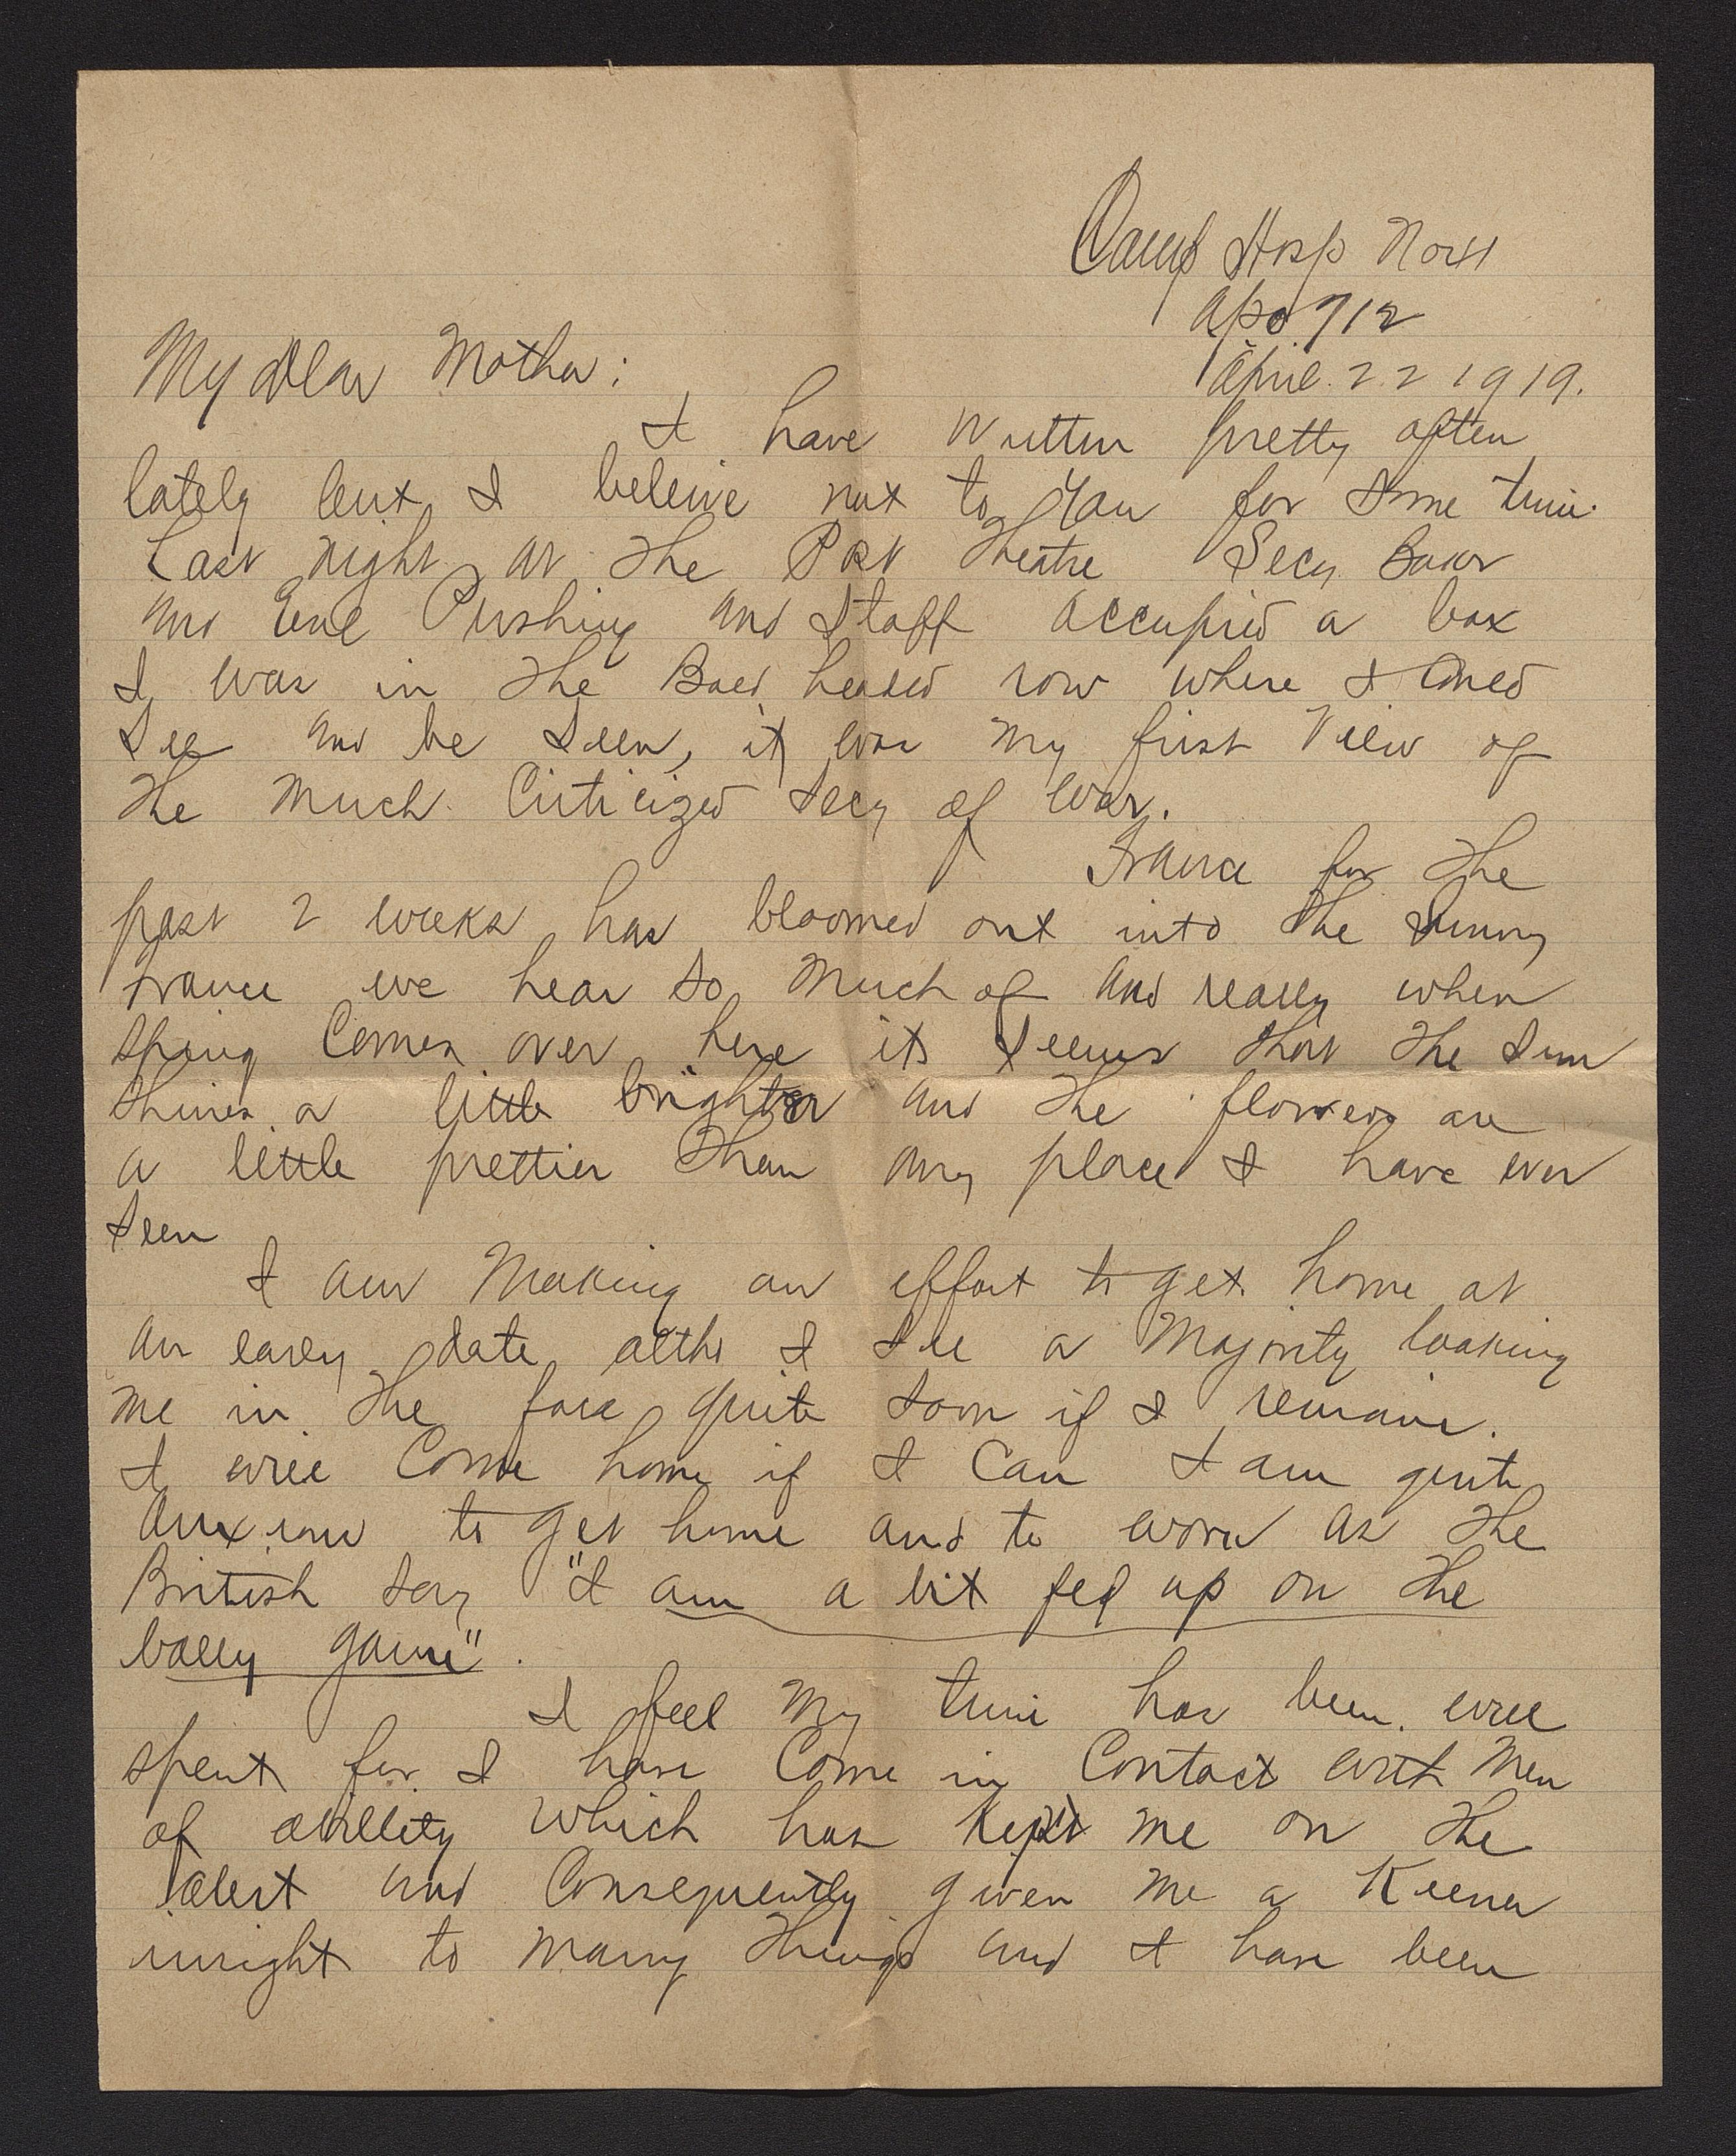 Camp Hosp No 41
apo 712
April 22 1919.
My dear Mother:
I have written pretty often
lately but I beleive not to you for some time.
Last night at the Post Theatre Secy Baker
and Genl Pershing and Staff occupied a box
I was in the Bald headed row where I could
see and be seen, it was my first view of
the much criticized secy of war.
France for the
past 2 weeks has bloomed out into the sunny
France we hear so much of and really when
spring comes over here its seems that the sun
shines a little brighter and the flowers are
a little prettier than any place I have ever
seen
I am making an effort to get home at
an early date altho I see a Majority looking
me in the face quite soon if I remain.
I will come home if I can I am quite
anxious to get home and to work as the
British say "I am a bit fed up on the
bally game".
I feel my time has been well
spent for I have come in contact with men
of abillety which has kept me on the
alert and consequently given me a keener
insight to many things and I have been